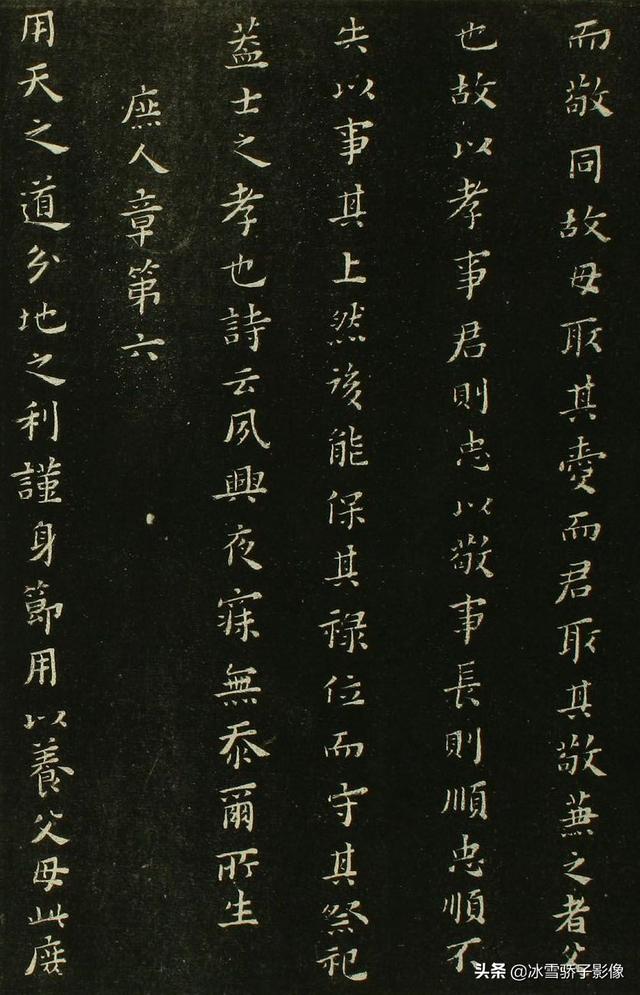 而敬同故母取其愛而君取其敬蒹之者父
也故以孝事君則忠以敬事長則順忠順不
失以事其上然後能保其祿位而守其祭祀
蓋士之孝也詩云夙興夜寐無忝爾所生
庶人章第六
用天之道分地之利謹身節用以養父母此庶
头条 @冰雪骄子影像